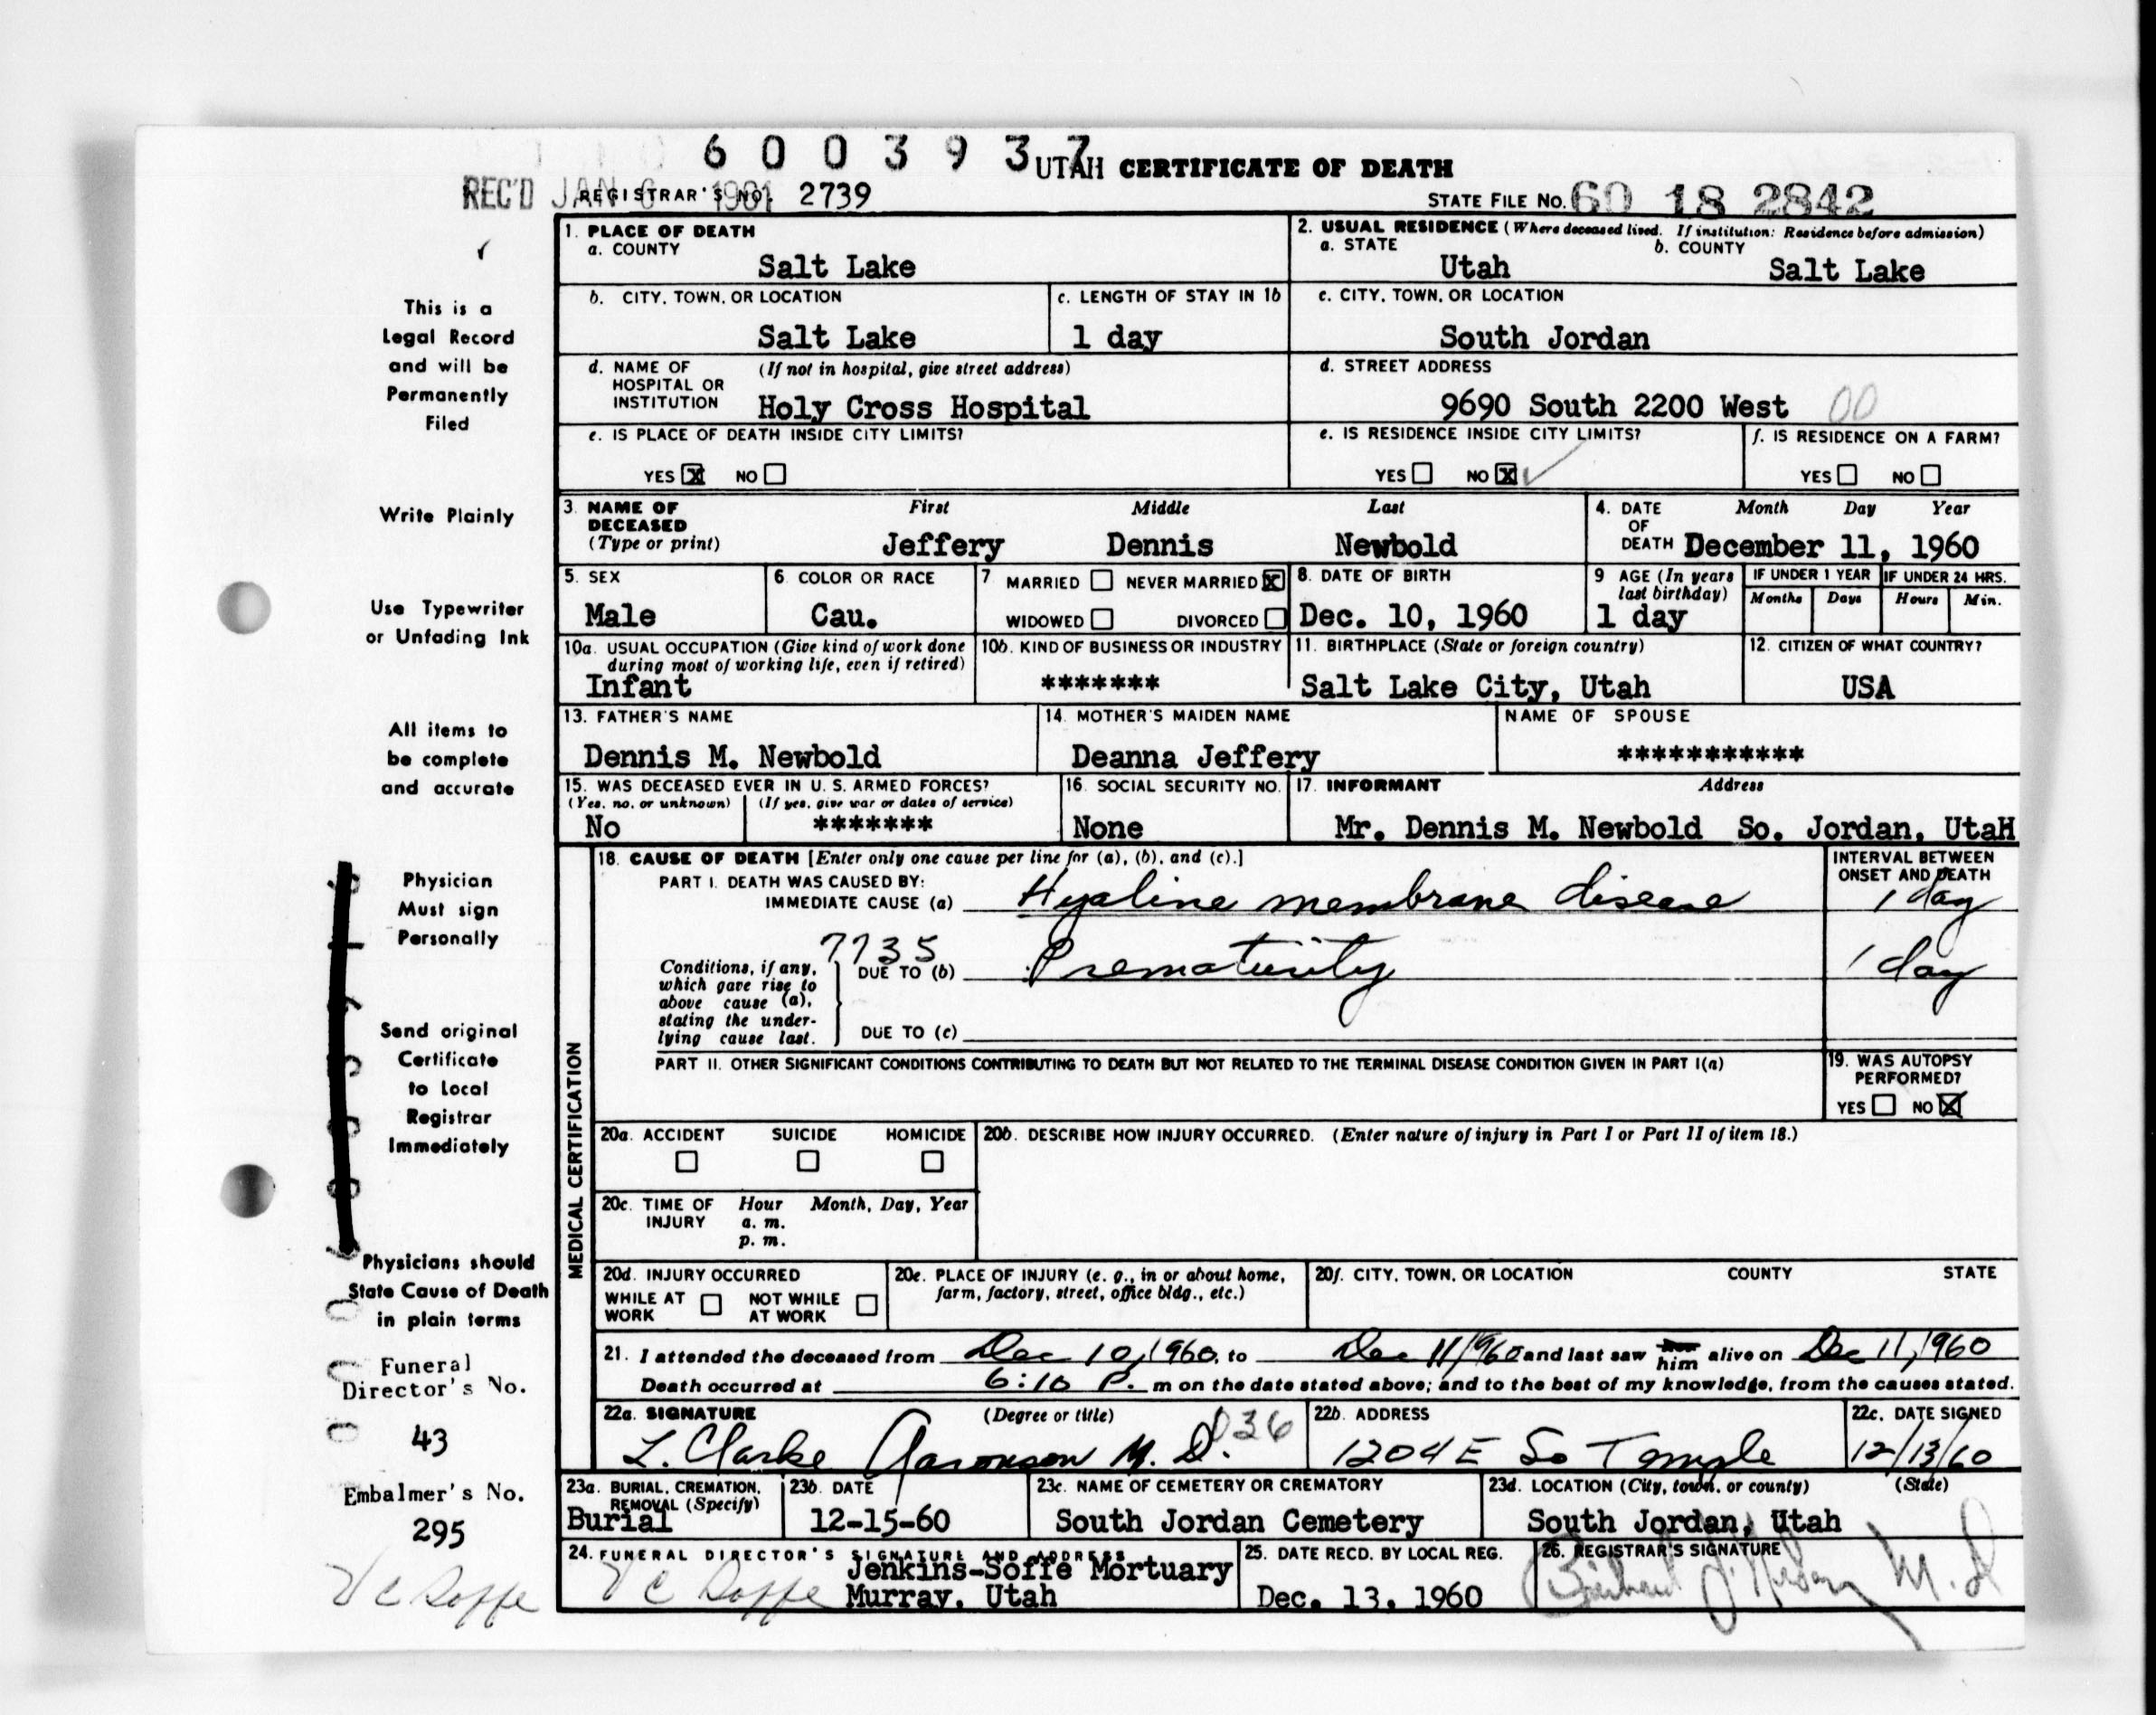 6 0 0 3 9 3 7
UTAH CERTIFICATE OF DEATH
REC'D JAN 6 1961 REGISTRAR'S NO. 2739
STATE FILE NO. 60 18 2842
1. PLACE OF DEATH
a. COUNTY
Salt Lake
2. USUAL RESIDENCE (Where deceased lived. If institution: Residence before admission)
a. STATE b. COUNTY
Utah Salt Lake
b. CITY, TOWN, OR LOCATION
Salt Lake
c. LENGTH OF STAY IN 1b
1 day
c. CITY, TOWN, OR LOCATION
South Jordan
d. NAME OF (If not in hospital, give street address)
HOSPITAL OR
INSTITUTION Holy Cross Hospital
d. STREET ADDRESS
9690 South 2200 West 00
e. IS PLACE OF DEATH INSIDE CITY LIMITS?
YES X NO
e. IS RESIDENCE INSIDE CITY LIMITS?
YES NO X
f. IS RESIDENCE ON A FARM?
YES NO
3. NAME OF DECEASED
(Type or print)
First Middle Last
Jeffery Dennis Newbold
4. DATE OF DEATH
Month Day Year
December 11, 1960
5. SEX
Male
6. COLOR OR RACE
Cau.
7. MARRIED NEVER MARRIED X
WIDOWED DIVORCED
8. DATE OF BIRTH
Dec. 10, 1960
9 AGE (In years
last birthday)
1 day
IF UNDER 1 YEAR IF UNDER 24 HRS.
Months Days Hours Min.
10a. USUAL OCCUPATION (Give kind of work done
during most of working life, even if retired)
Infant
10b. KIND OF BUSINESS OR INDUSTRY
*******
11. BIRTHPLACE (State or foreign country)
Salt Lake City, Utah
12. CITIZEN OF WHAT COUNTRY?
USA
13. FATHER'S NAME
Dennis M. Newbold
14. MOTHER'S MAIDEN NAME
Deanna Jeffery
NAME OF SPOUSE
***********
15. WAS DECEASED EVER IN U. S. ARMED FORCES?
(Yes, no, or unknown) (If yes, give war or dates of service)
No *******
16. SOCIAL SECURITY NO.
None
17. INFORMANT Address
Mr. Dennis M. Newbold So. Jordan, UtaH
MEDICAL CERTIFICATION
18. CAUSE OF DEATH [Enter only one cause per line for (a), (b), and (c).]
PART I. DEATH WAS CAUSED BY:
IMMEDIATE CAUSE (a) Hyaline membrane disease
INTERVAL BETWEEN
ONSET AND DEATH
1 day
7735
Conditions, if any,
which gave rise to
above cause (a),
stating the under-
lying cause last.
DUE TO (b) Prematurity
1 day
DUE TO (c)
PART II. OTHER SIGNIFICANT CONDITIONS CONTRIBUTING TO DEATH BUT NOT RELATED TO THE TERMINAL DISEASE CONDITION GIVEN IN PART I(a)
19. WAS AUTOPSY
PERFORMED?
YES NO X
20a. ACCIDENT SUICIDE HOMICIDE
20b. DESCRIBE HOW INJURY OCCURRED. (Enter nature of injury in Part I or Part II of item 18.)
20c. TIME OF INJURY
Hour Month, Day, Year
a. m.
p. m.
20d. INJURY OCCURRED
WHILE AT WORK NOT WHILE AT WORK
20e. PLACE OF INJURY (e. g., in or about home,
farm, factory, street, office bldg., etc.)
20f. CITY, TOWN, OR LOCATION COUNTY STATE
21. I attended the deceased from Dec 10, 1960, to Dec 11 1960 and last saw her him alive on Dec 11, 1960
Death occurred at 6:10 P. m on the date stated above; and to the best of my knowledge, from the causes stated.
22a. SIGNATURE (Degree or title)
L. Clarke Aaronson M. D. 036
22b. ADDRESS
1204 E So Temple
22c. DATE SIGNED
12/13/60
23a. BURIAL, CREMATION,
REMOVAL (Specify)
Burial
23b. DATE
12-15-60
23c. NAME OF CEMETERY OR CREMATORY
South Jordan Cemetery
23d. LOCATION (City, town, or county) (State)
South Jordan, Utah
24. FUNERAL DIRECTOR'S SIGNATURE AND ADDRESS
V C Soffe Jenkins-Soffe Mortuary
Murray, Utah
25. DATE RECD. BY LOCAL REG.
Dec. 13, 1960
26. REGISTRAR'S SIGNATURE
M. D
This is a
Legal Record
and will be
Permanently
Filed
Write Plainly
Use Typewriter
or Unfading Ink
All items to
be complete
and accurate
Physician
Must sign
Personally
Send original
Certificate
to Local
Registrar
Immediately
Physicians should
State Cause of Death
in plain terms
Funeral
Director's No.
43
Embalmer's No.
295
V C Soffe